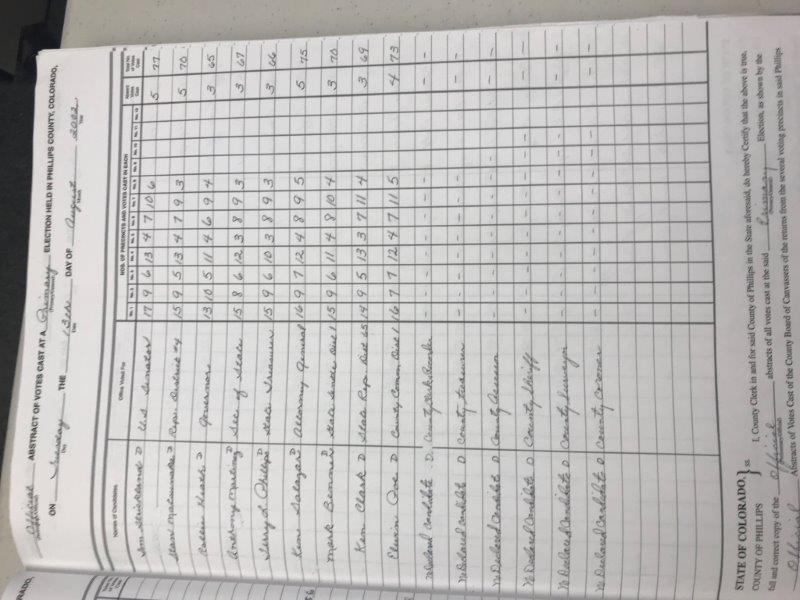 Official ABSTRACT OF VOTES CAST AT A Primary ELECTION HELD IN PHILLIPS COUNTY, COLORADO,
ON Tuesday THE 13th DAY OF August 2002
Day Date Month Year
Names of Candidates Office Voted For NOS. OF PRECINCTS AND VOTES CAST IN EACH Absent Votes Cast Total No. of Votes Cast
No. 1 No. 2 No. 3 No. 4 No. 5 No. 6 No. 7 No. 8 No. 9 No. 10 No. 11 No. 12
Tom Strickland D U.S. Senator 17 9 6 13 4 7 10 6 5 77
Stan Matsunaka D Rep. District #4 15 9 5 13 4 7 9 3 5 70
Rollie Heath D Governor 13 10 5 11 4 6 9 4 3 65
Anthony Martinez D Sec of State 15 8 6 12 3 8 9 3 3 67
Terry L. Phillips D State Treasurer 15 9 6 10 3 8 9 3 3 66
Ken Salazar D Attorney General 16 9 7 12 4 8 9 5 5 75
Mark D State Senate Dist 1 15 9 6 11 4 8 10 4 3 70
Ken Clark D State Rep. Dist 65 14 9 5 13 3 7 11 4 3 69
D County Comm Dist 1 16 7 7 12 4 7 11 5 4 73
No Declared Candidate D County Clerk Recorder - - - - - - - - - -
No Declared Candidate D County Treasurer - - - - - - - - - -
No Declared Candidate D County Assessor - - - - - - - - - -
No Declared Candidate D County Sheriff - - - - - - - - - -
No Declared Candidate D County Surveyor - - - - - - - - - -
No Declared Candidate D County Coroner - - - - - - - - - -
STATE OF COLORADO, } ss.
COUNTY OF PHILLIPS
I, County Clerk in and for said County of Phillips in the State aforesaid, do hereby Certify that the above is true,
full and correct copy of the Official abstracts of all votes cast at the said Primary Election, as shown by the
Official Abstracts of Votes Cast of the County Board of Canvassers of the returns from the several voting precincts in said Phillips